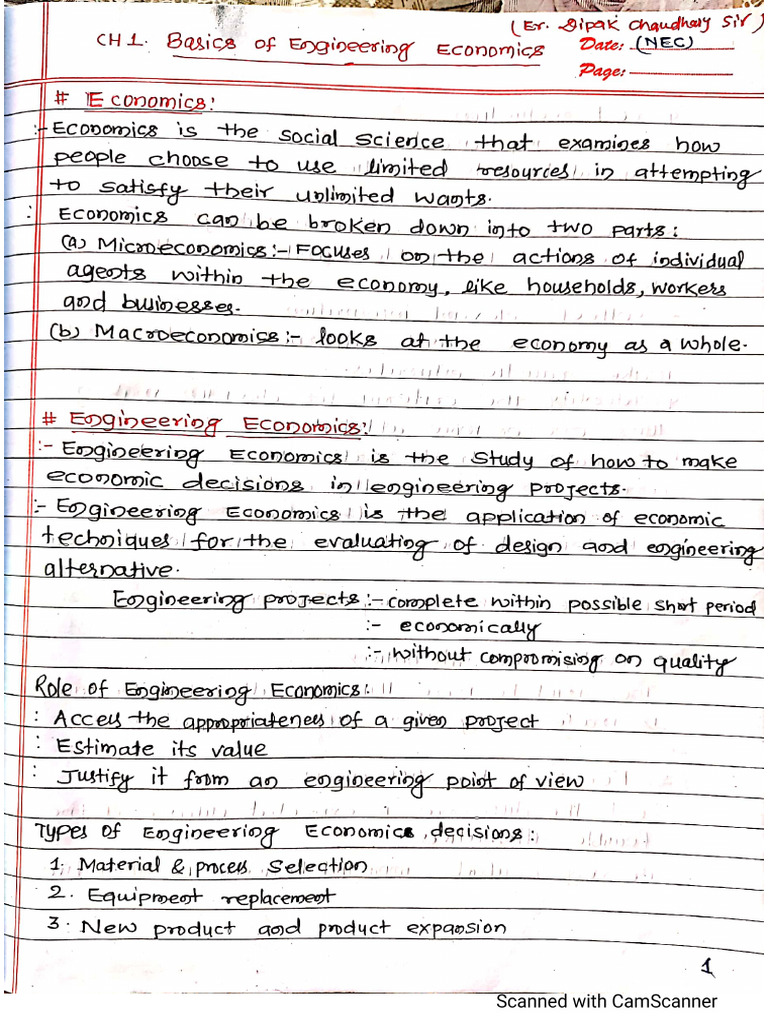 (Er. Dipak Chaudhary Sir)
CH 1. Basics of Engineering Economics
Date: (NEC)
Page:
# Economics:
:- Economics is the social science that examines how
people choose to use limited resources in attempting
to satisfy their unlimited wants.
: Economics can be broken down into two parts:
(a) Microeconomics:- Focuses on the actions of individual
agents within the economy, like households, workers
and businesses.
(b) Macroeconomics:- looks at the economy as a whole.
# Engineering Economics:
:- Engineering Economics is the study of how to make
economic decisions in engineering projects.
:- Engineering Economics is the application of economic
techniques for the evaluating of design and engineering
alternative.
Engineering projects:- complete within possible short period
:- economically
:- without compromising on quality
Role of Engineering Economics:
: Access the appropriateness of a given project
: Estimate its value
: Justify it from an engineering point of view
Types of Engineering Economics decisions:
1. Material & process Selection
2. Equipment replacement
3. New product and product expansion
1
Scanned with CamScanner